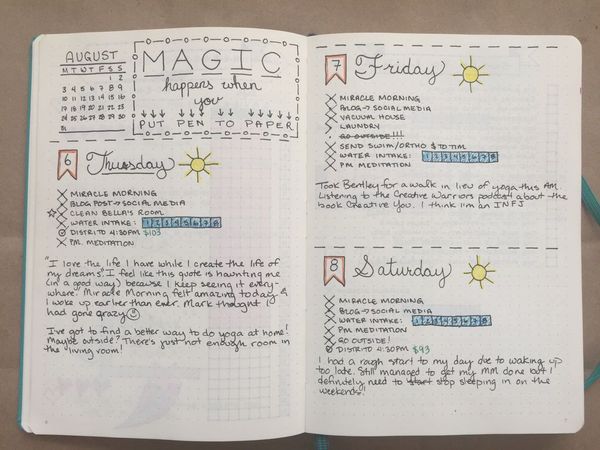 AUGUST
M T W T F S S
1 2
3 4 5 6 7 8 9
10 11 12 13 14 15 16
17 18 19 20 21 22 23
24 25 26 27 28 29 30
31
MAGIC
happens when
you
PUT PEN TO PAPER
6 Thursday
MIRACLE MORNING
BLOG POST → SOCIAL MEDIA
CLEAN BELLA'S ROOM
WATER INTAKE: 1 2 3 4 5 6 7 8
DISTRICT @ 4:30PM $103
PM. MEDITATION
"I love the life I have while I create the life of
my dreams". I feel like this quote is haunting me
(in a good way) because I keep seeing it every-
where. Miracle Morning felt amazing today &
I woke up earlier than ever. Mark thought I
had gone crazy
I've got to find a better way to do yoga at home!
Maybe outside? There's just not enough room in
the living room!
7 Friday
MIRACLE MORNING
BLOG → SOCIAL MEDIA
VACUUM HOUSE
LAUNDRY
GO OUTSIDE!!!
SEND SWIM/ORTHO $ TO TIM
WATER INTAKE: 1 2 3 4 5 6 7 8
PM MEDITATION
Took Bentley for a walk in lieu of yoga this AM.
Listening to the Creative Warriors podcast about the
book Creative You. I think I'm an INFJ
8 Saturday
MIRACLE MORNING
BLOG → SOCIAL MEDIA
WATER INTAKE: 1 2 3 4 5 6 7 8
PM MEDITATION
GO OUTSIDE!
4:30PM $93
I had a rough start to my day due to waking up
too late. Still managed to get my MM done but I
definitely need to start stop sleeping in on the
weekends!